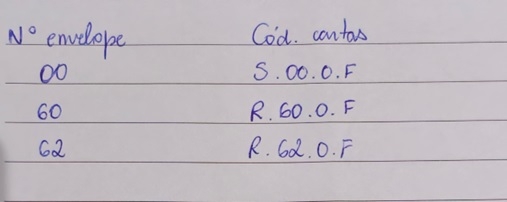 Nº envelope Cód. contas
00 S.00.0.F
60 R.60.0.F
62 R.62.0.F